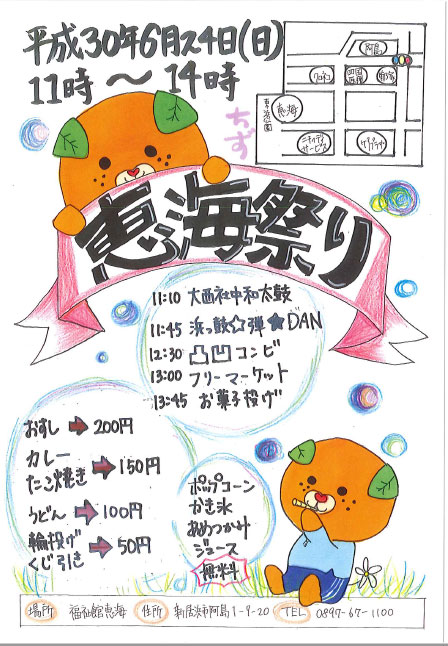 平成30年6月24日(日)
11時～14時
ちず
阿島
四国
恵海
恵海祭り
11:10 大西社中和太鼓
11:45 浜っ鼓☆弾★DAN
12:30 凸凹コンビ
13:00 フリーマーケット
13:45 お菓子投げ
おすし ➡ 200円
カレー
たこ焼き ➡ 150円
うどん ➡ 100円
輪投げ
くじ引き ➡ 50円
ポップコーン
かき氷
あめつかみ
ジュース
無料
場所 福祉館恵海 住所 新居浜市阿島1-9-20 TEL 0897-67-1100